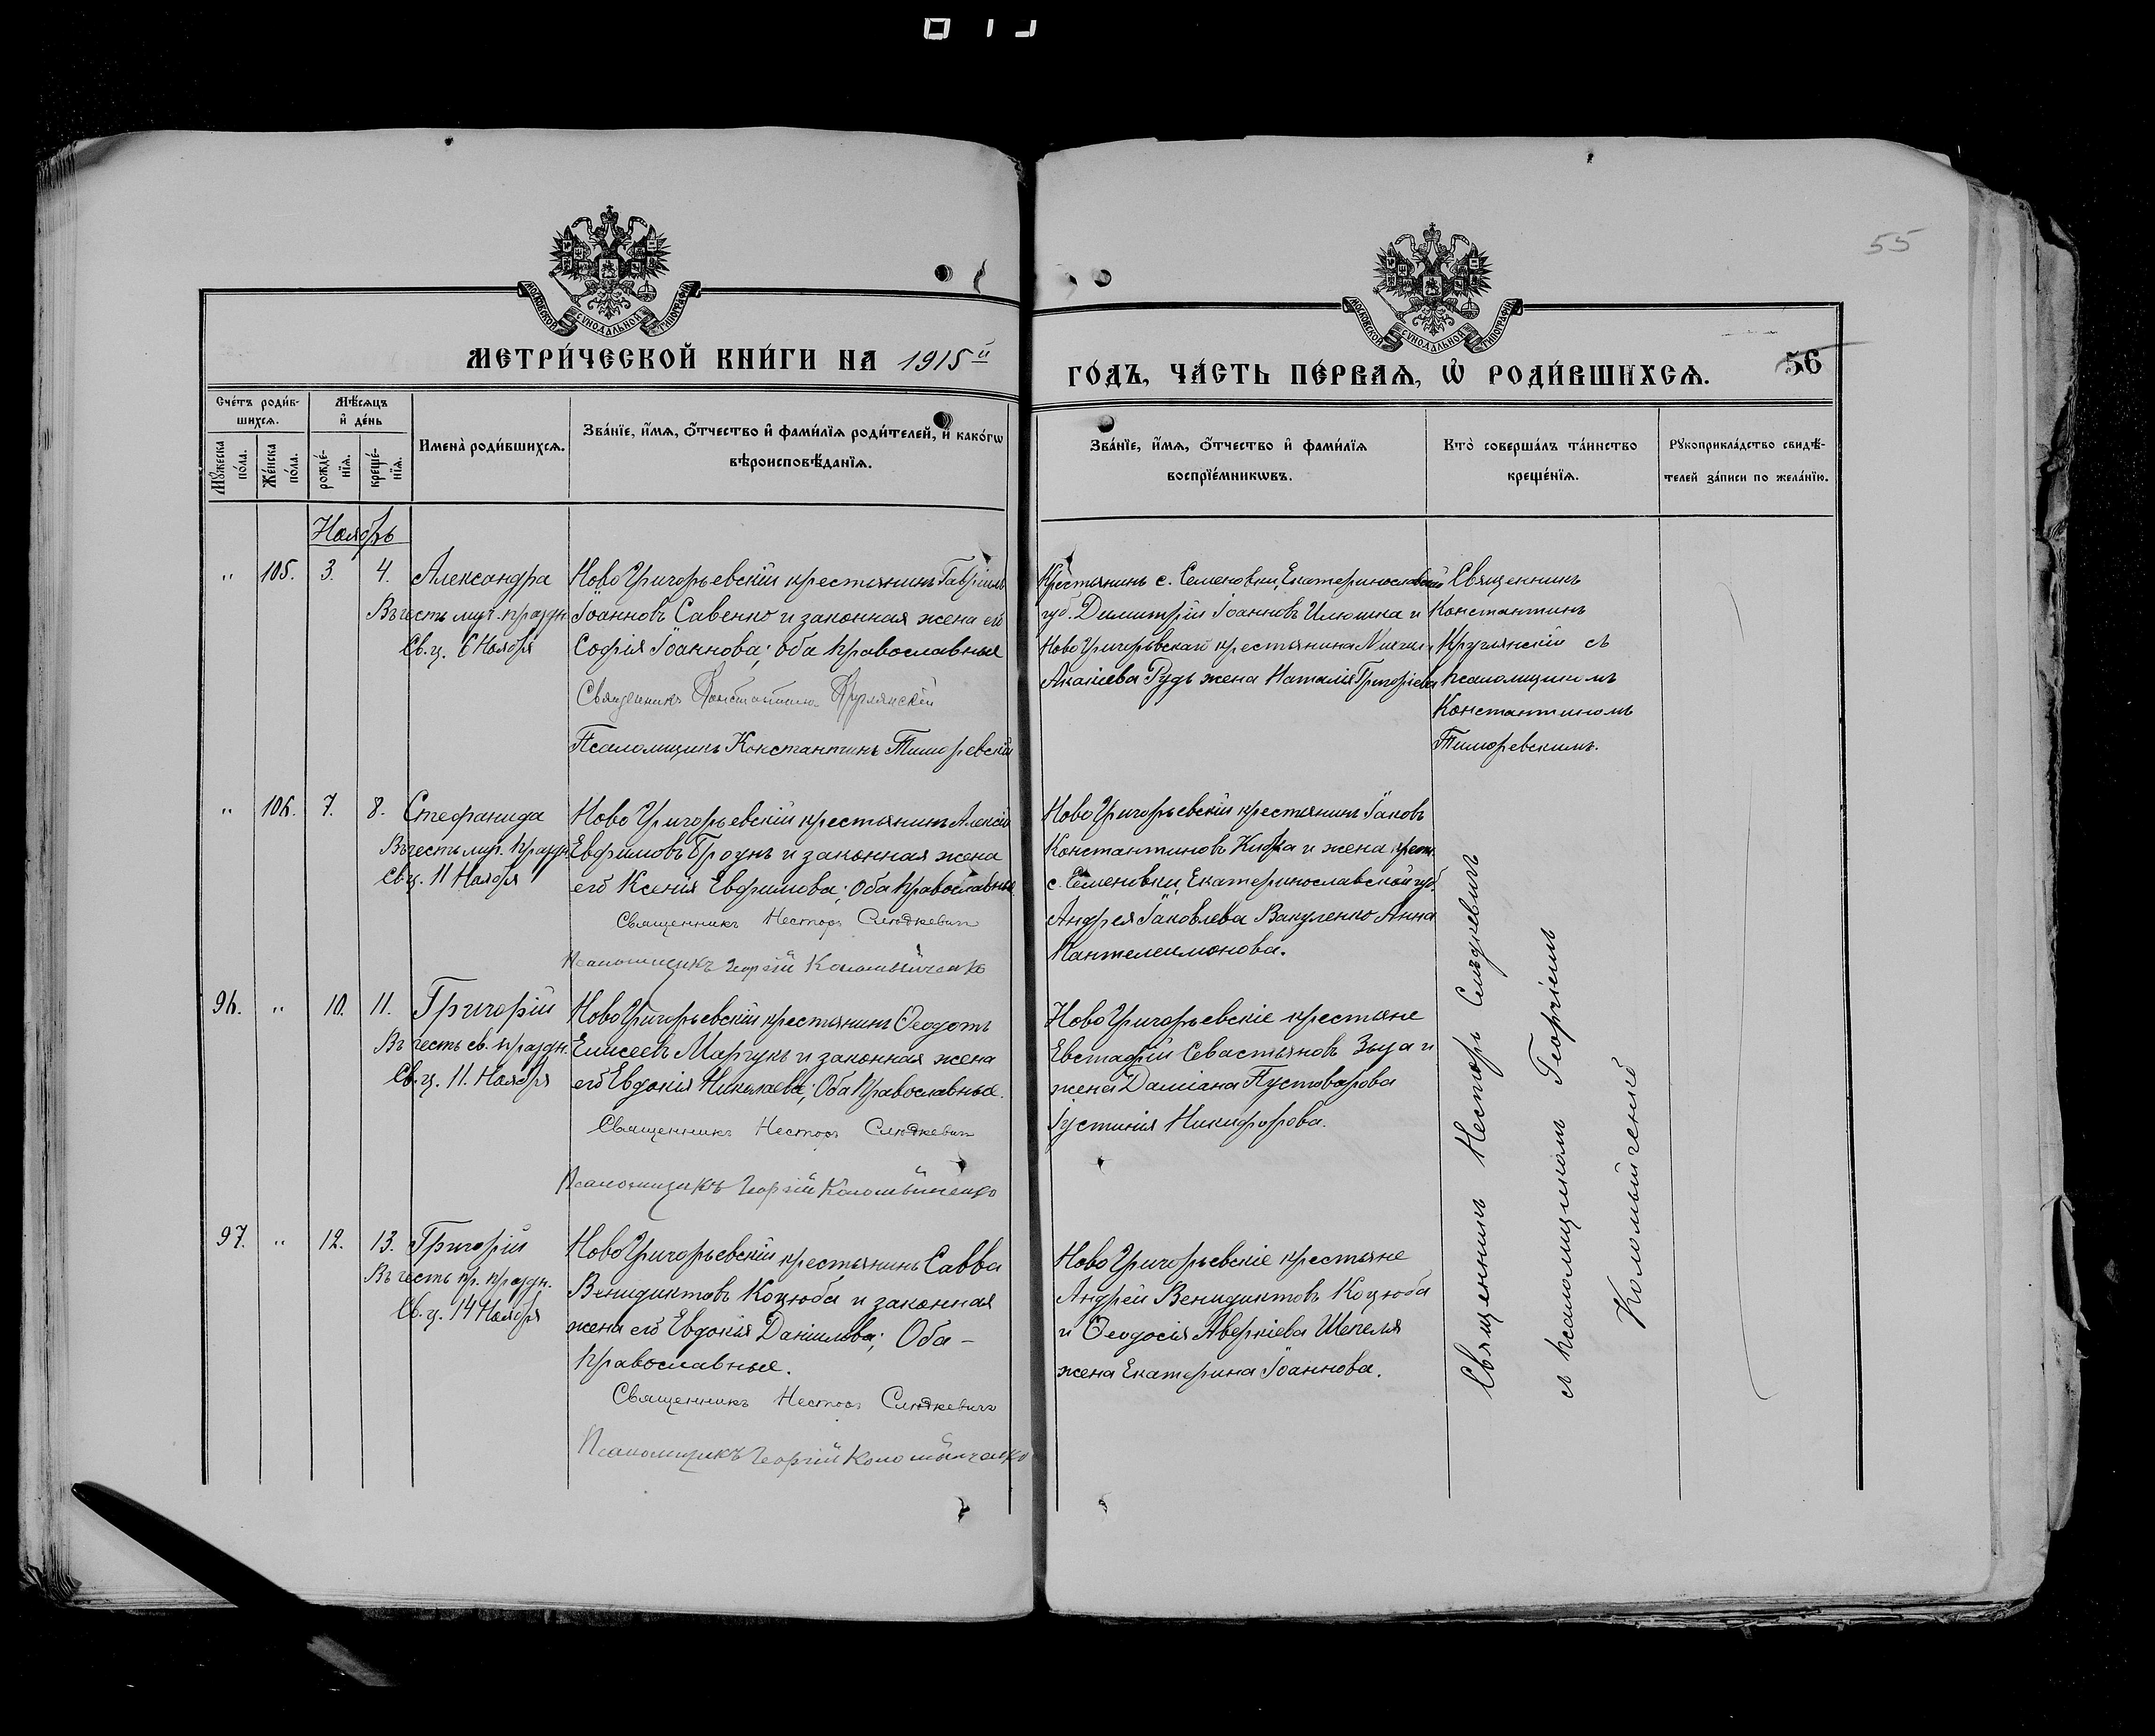 55
МОСКОВСКОЙ СѴНОДАЛЬНОЙ ТИПОГРАФІИ
МОСКОВСКОЙ СѴНОДАЛЬНОЙ ТИПОГРАФІИ
МЕТРИ́ЧЕСКОЙ КНИ́ГИ НА 1915й
ГО́ДЪ, ЧА́СТЬ ПЕ́РВАѦ, Ѡ҆ РОДИ́ВШИХСѦ.
56
Сче́тъ роди́в-
шихсѧ.
Мꙋ́жеска по́ла.
Же́нска по́ла.
Мѣ́сѧцъ
и҆ де́нь
рожде́-
нїѧ.
креще́-
нїѧ.
Имена̀ роди́вшихсѧ.
Зва́нїе, и҆́мѧ, ѻ҆́тчество и҆ фами́лїѧ роди́телей, и҆ како́гѡ
вѣроисповѣ́данїѧ.
Зва́нїе, и҆́мѧ, ѻ҆́тчество и҆ фами́лїѧ
воспрїе́мникѡвъ.
Кто̀ соверша́лъ та́инство
креще́нїѧ.
Рꙋкоприкла́дство свидѣ́-
телей за́писи по жела́нїю.
Ноябрь
" 105. 3. 4. Александра
Въ честь муч. праздн.
Св. ц. 6 Ноября
НовоГригорьевскій крестьянинъ Гавріилъ
Іоанновъ Савенко и законная жена его
Софія Іоаннова; оба православные
Священникъ Константинъ Круглянскій
Псаломщикъ Константинъ
Крестьянинъ с. Семеновки, Екатеринославской
губ. Димитрій Іоанновъ Илюшка и
НовоГригорьевскаго крестьянина
Акакіева Рудь жена Наталія Григоріева
Священникъ
Константинъ
Круглянскій съ
псаломщикомъ
Константиномъ
" 106. 7. 8. Стефанида
Въ честь муч. праздн.
Св. ц. 11 Ноября
НовоГригорьевскій крестьянинъ Алексій
Евфимовъ и законная жена
его Ксенія Евфимова; Оба православные
Священникъ Несторъ
Псаломщикъ Георгій Коломыйченко
НовоГригорьевскій крестьянинъ Іаковъ
Константиновъ и жена крест.
с. Семеновки, Екатеринославской губ.
Андрея Іаковлева Вакуленко Анна
Пантелеимонова.
96. " 10. 11. Григорій
Въ честь св. праздн.
Св. ц. 11. Ноября
НовоГригорьевскій крестьянинъ Ѳеодотъ
Елисеевъ Марчукъ и законная жена
его Евдокія Николаева; Оба православные.
Священникъ Несторъ
Псаломщикъ Георгій Коломыйченко
НовоГригорьевскіе крестьяне
Евстафій Севастьяновъ Зыза и
жена Даміана Пустоварова
Іустинія Никифорова.
97. " 12. 13. Григорій
Въ честь пр. праздн.
Св. ц. 14 Ноября
НовоГригорьевскій крестьянинъ Савва
Венидиктовъ Коцюба и законная
жена его Евдокія Даніилова; Оба -
православные.
Священникъ Несторъ
Псаломщикъ Георгій Коломыйченко
НовоГригорьевскіе крестьяне
Андрей Венидиктовъ Коцюба
и Ѳеодосія Аверкіева Шепеля
жена Екатерина Іоаннова.
Священникъ Несторъ
съ псаломщикомъ Георгіемъ
Коломыйченко